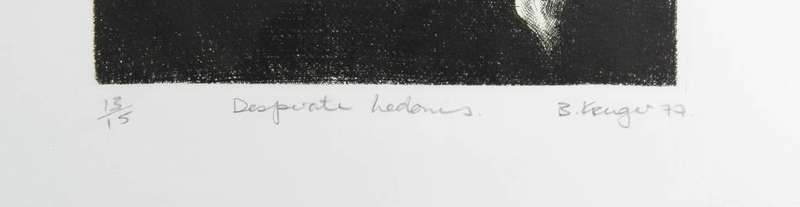 13/15 Desperate hedonis. B. Kruger 77.